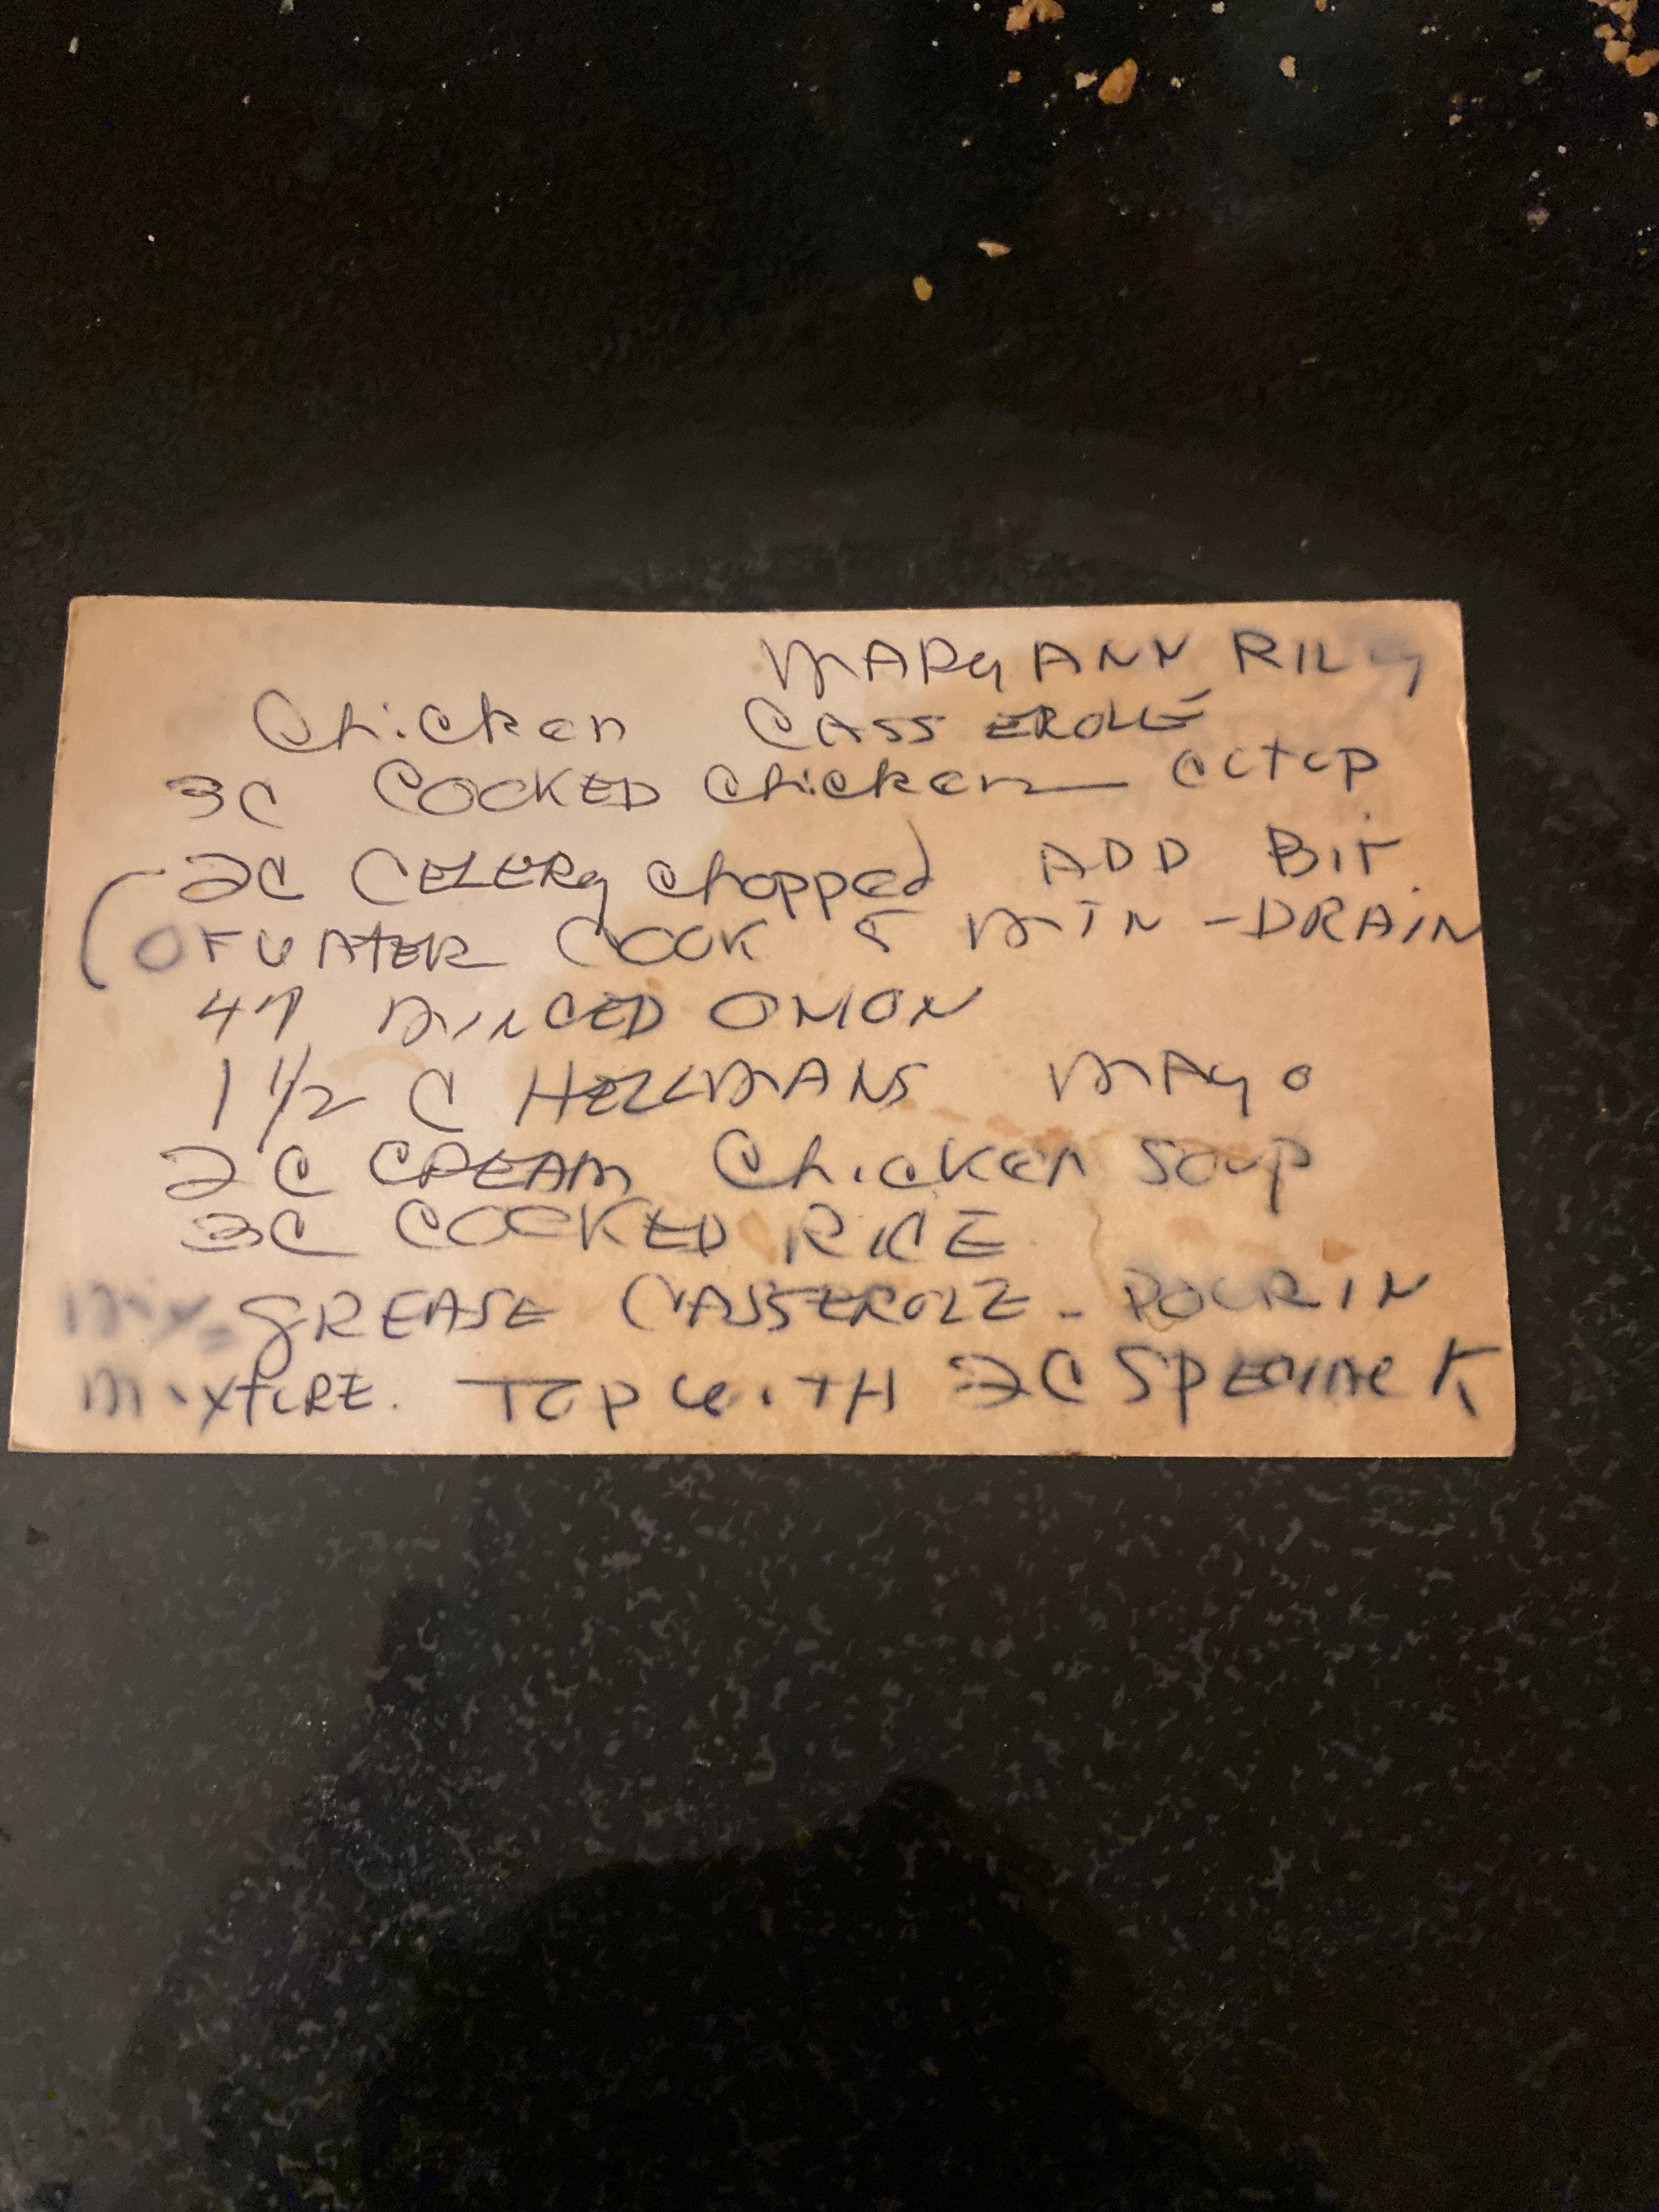 MARY ANN RILEY
Chicken CASSEROLE
3C COOKED Chicken cut up
2C CELERY chopped ADD BIT
OF WATER COOK 5 MIN - DRAIN
4T MINCED ONION
1 1/2 C HELLMANS MAYO
2C CREAM Chicken Soup
3C COOKED RICE
MIX = GREASE CASSEROLE - POUR IN
MIXTURE. TOP WITH 2C SPECIAL K